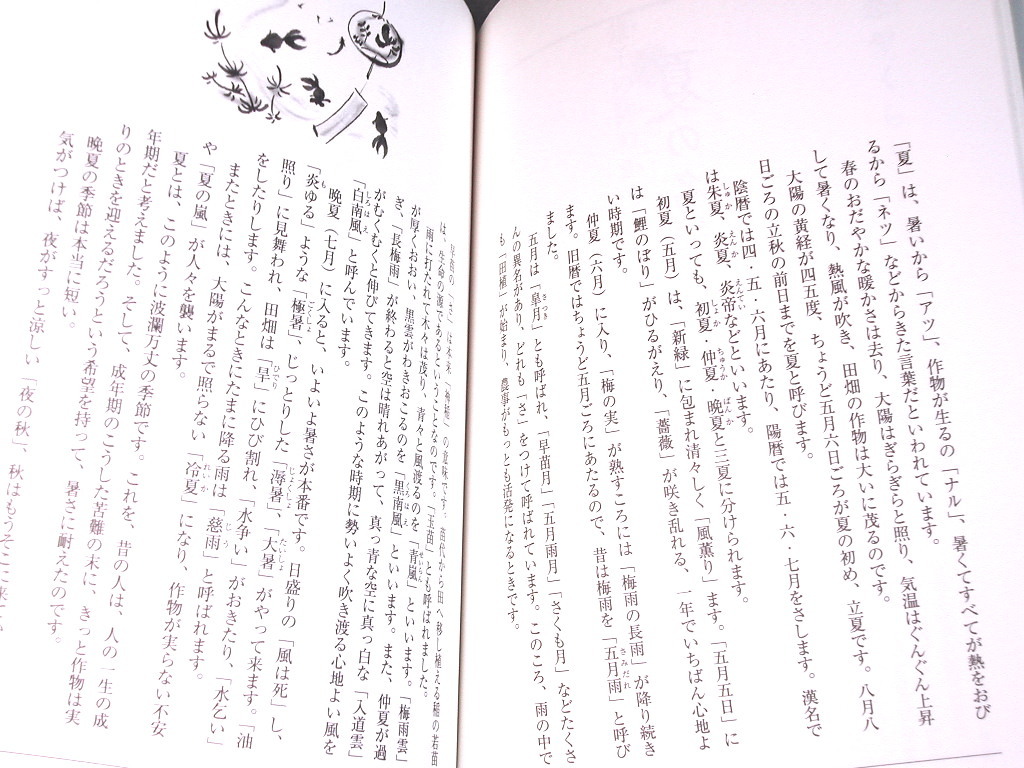 「夏」は、暑いから「アツ」、作物が生るの「ナル」、暑くてすべてが熱をおび
るから「ネツ」などからきた言葉だといわれています。
春のおだやかな暖かさは去り、大陽はぎらぎらと照り、気温はぐんぐん上昇
して暑くなり、熱風が吹き、田畑の作物は大いに茂るのです。
大陽の黄経が四五度、ちょうど五月六日ごろが夏の初め、立夏です。八月八
日ごろの立秋の前日までを夏と呼びます。
陰暦では四・五・六月にあたり、陽暦では五・六・七月をさします。漢名で
は朱夏、炎夏、炎帝などといいます。
夏といっても、初夏・仲夏・晩夏と三夏に分けられます。
初夏（五月）は、「新緑」に包まれ清々しく「風薫り」ます。「五月五日」に
は「鯉のぼり」がひるがえり、「薔薇」が咲き乱れる、一年でいちばん心地よ
い時期です。
仲夏（六月）に入り、「梅の実」が熟すころには「梅雨の長雨」が降り続き
ます。旧暦ではちょうど五月ごろにあたるので、昔は梅雨を「五月雨」と呼び
ました。
五月は「皐月」とも呼ばれ、「早苗月」「五月雨月」「さくも月」などたくさ
んの異名があり、どれも「さ」をつけて呼ばれています。このころ、雨の中で
も「田植」が始まり、農事がもっとも活発になるときです。
早苗の「さ」は本来「神稲」の意味です。苗代から田へ移し植える稲の若苗
は、生命の源であるということなのです。「玉苗」とも呼ばれました。
雨に打たれて木々は茂り、青々と風渡るのを「青嵐」といいます。「梅雨雲」
が厚くおおい、黒雲がわきおこるのを「黒南風」といいます。また、仲夏が過
ぎ、「長梅雨」が終わると空は晴れあがって、真っ青な空に真っ白な「入道雲」
がむくむくと伸びてきます。このような時期に勢いよく吹き渡る心地よい風を
「白南風」と呼んでいます。
晩夏（七月）に入ると、いよいよ暑さが本番です。日盛りの「風は死」し、
「炎ゆる」ような「極暑」、じっとりした「溽暑」、「大暑」がやって来ます。「油
照り」に見舞われ、田畑は「旱」にひび割れ、「水争い」がおきたり、「水乞い」
をしたりします。こんなときにたまに降る雨は「慈雨」と呼ばれます。
またときには、大陽がまるで照らない「冷夏」になり、作物が実らない不安
や「夏の嵐」が人々を襲います。
夏とは、このように波瀾万丈の季節です。これを、昔の人は、人の一生の成
年期だと考えました。そして、成年期のこうした苦難の末に、きっと作物は実
りのときを迎えるだろうという希望を持って、暑さに耐えたのです。
晩夏の季節は本当に短い。
気がつけば、夜がすっと涼しい「夜の秋」、秋はもうそこに来て